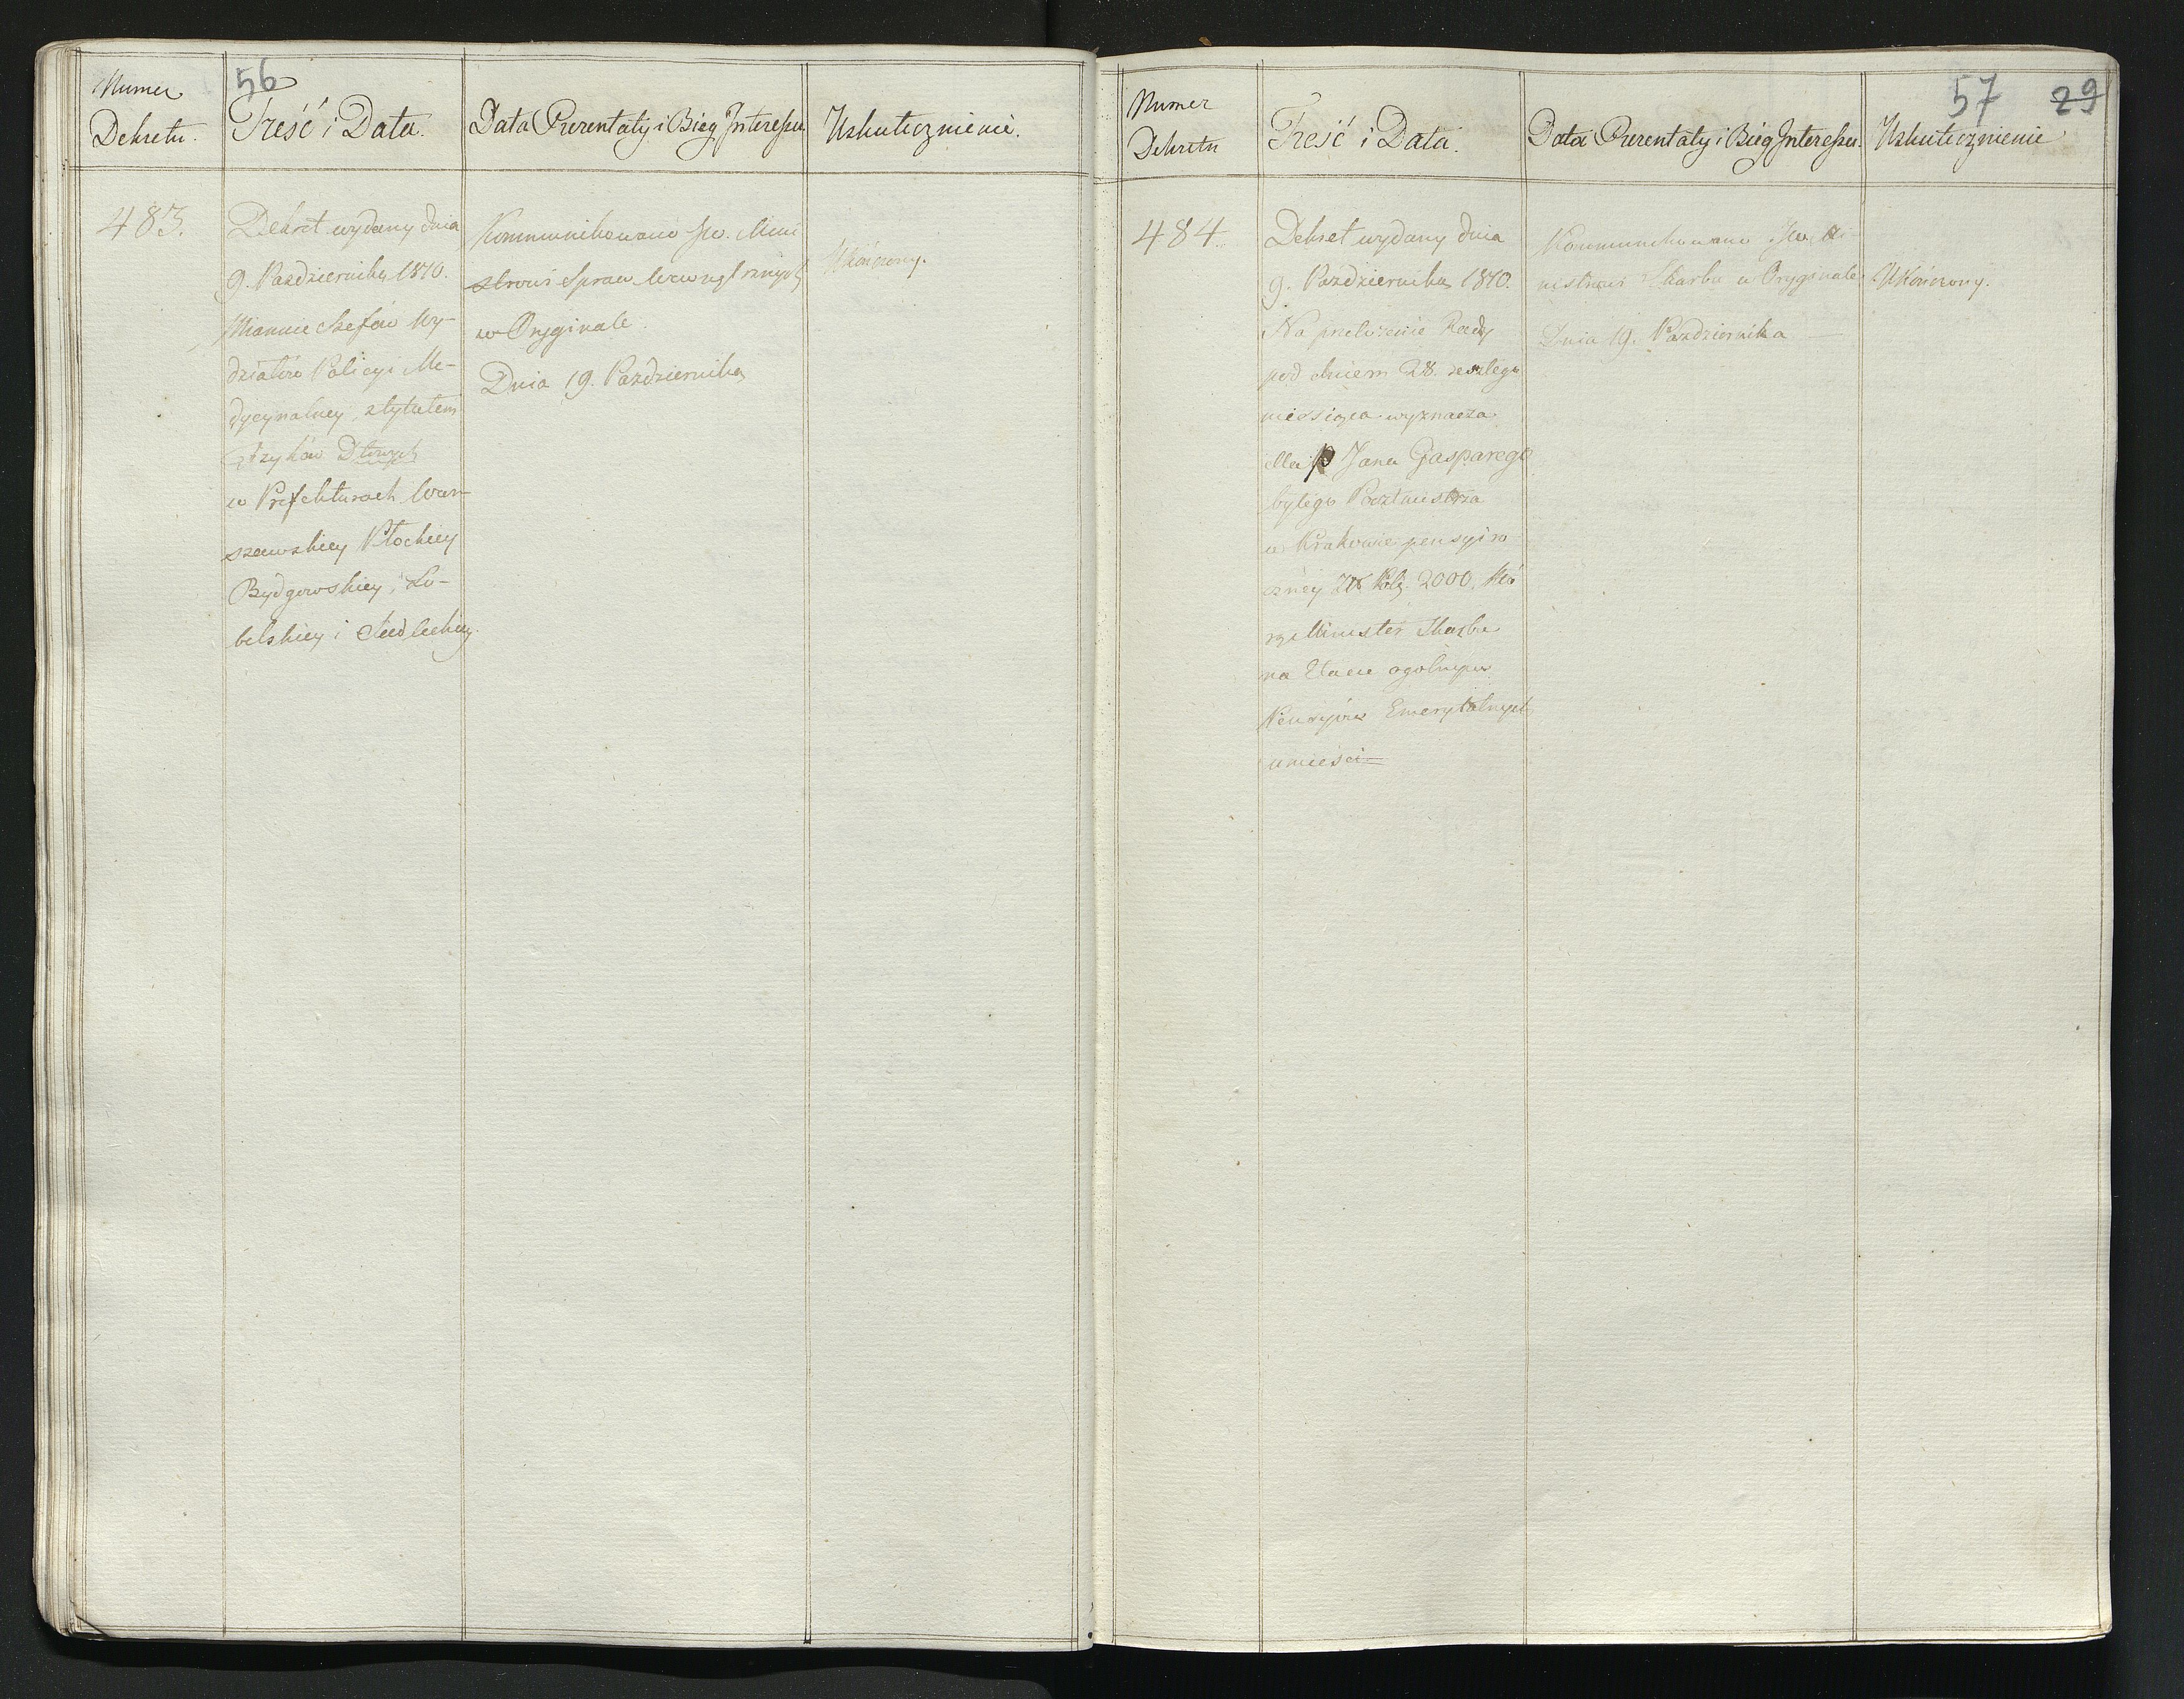 56
Numer Dekretu.
Treść i Data.
Data Prezentaty i Bieg Interessu
Uskutecznienie.
483.
Dekret wydany dnia
9. Pazdziernika 1810.
Mianuie Szefów Wy-
działów Policyi Me-
dycynalney, z tytułem
Fizyków
w Prefekturach War-
szawskiey Płockiey
Bydgowskiey, Lu-
belskiey i Siedleckiey.
Kommunikowano Jw. Mini
strowi Spraw Wewnętrznych
w Oryginale.
Dnia 19. Pazdziernika
Ukończony.
57 29
Numer Dekretu
Treść i Data.
Data Prezentaty i Bieg Interessu.
Uskutecznienie
484.
Dekret wydany dnia
9. Pazdziernika 1810.
Na przełożenie Rady
pod dniem 28. zeszłego
miesiąca wyznacza
dla P Jana Gasparego
byłego Poczmistrza
w Krakowie pensyi ro
czney Złt Pol. 2000. któ
rą Minister Skarbu
na Etacie ogólnym
Pensyów Emerytalnych
umieści
Kommunikowano Jw. Mi-
nistrowi Skarbu w Oryginale
Dnia 19. Pazdziernika
Ukończony.